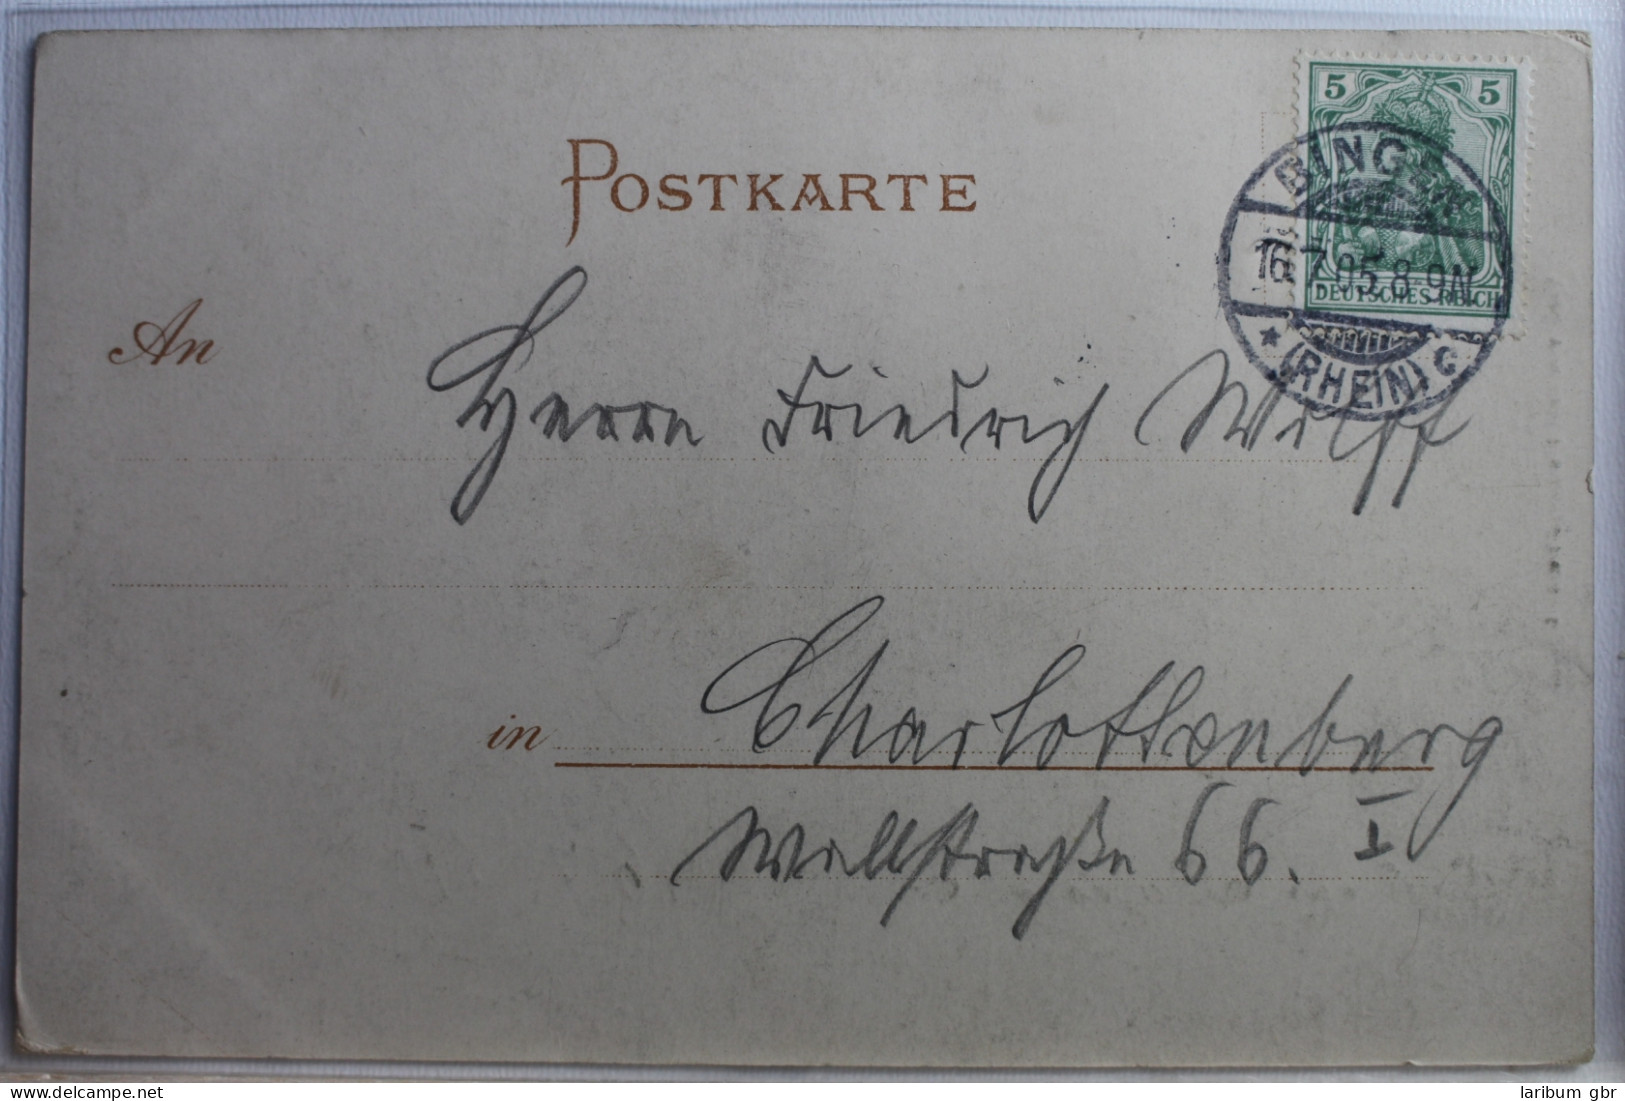 POSTKARTE
5 5
BINGEN
16.7.05.8-9N.
DEUTSCHES REICH
(RHEIN) C
An Herrn Friedrich Wolff
in Charlottenberg
Wallstraße 66. I
laribum gbr